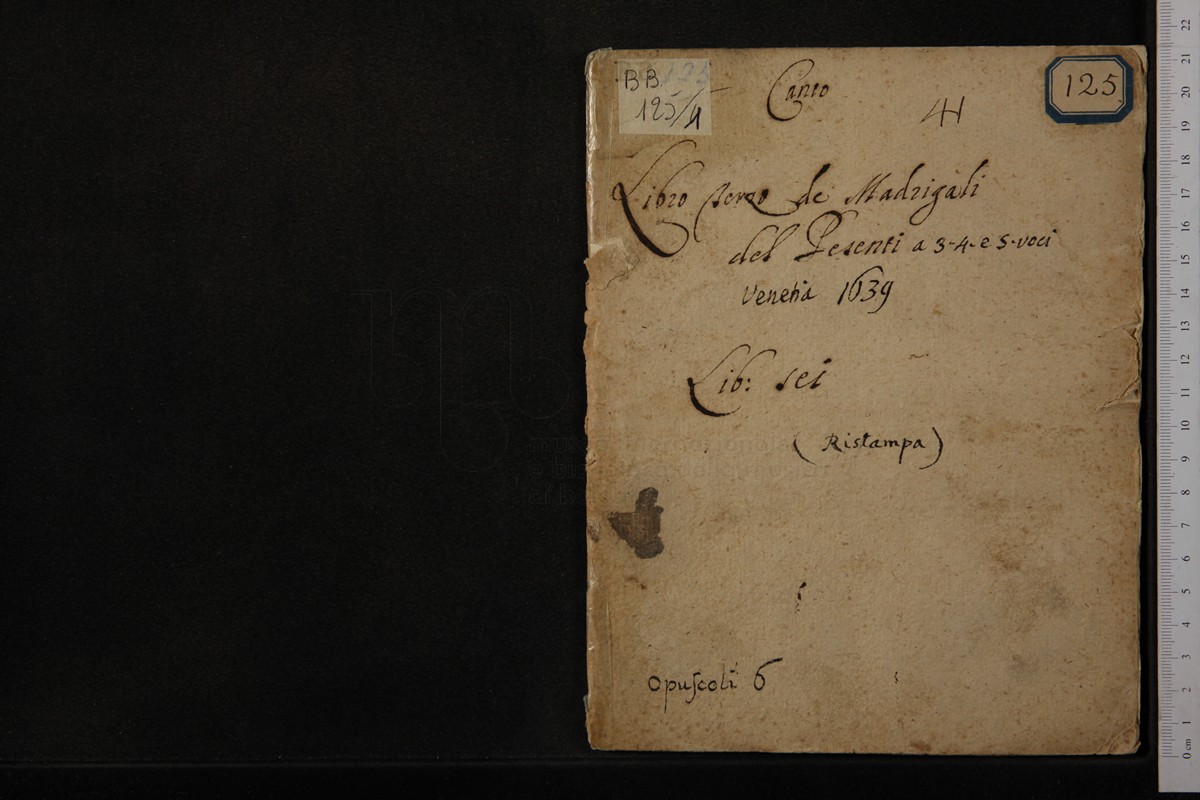 BB 125
125/4
Canto
41
125
Libro terzo de Madrigali
del Pesenti a 3-4-e 5-voci
Venetia 1639
Lib: sei
(Ristampa)
Opuſcoli 6
22
21
20
19
18
17
16
15
14
13
12
11
10
9
8
7
6
5
4
3
2
1
0 cm